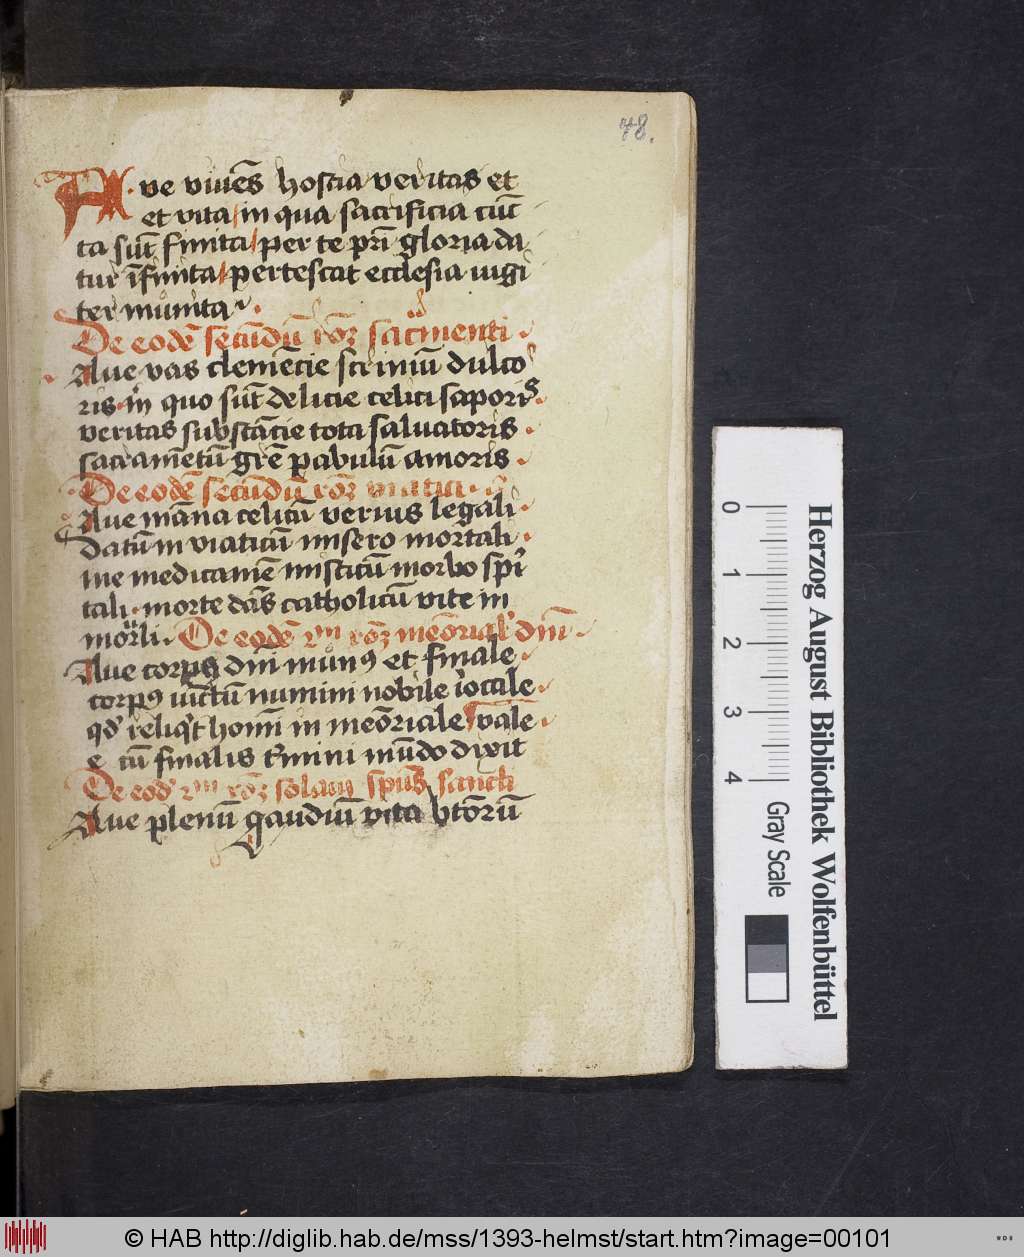 48.
Ave viuēs hostia veritas et
et vita in qua sacrificia cūc
ta sūt finita per te pr̄i gloria da
tur īfinita per te stat ecclesia iugi
ter munita
De eodē secūdū rōꝫ sacͣmenti
Aue vas clemēcie scriniū dulco
ris in quo sūt delicie celici saporis
veritas substācie tota saluatoris
sacramētū grē pabulū amoris
De eodē secūdū rōꝫ viatici
Aue māna celicū verius legali
datū in viaticū misero mortali
me medicamē misticū morbo spī
tali morte dās catholicū vite in
mor̄li De eodē rōꝫ meōrial dnī
Aue corpꝰ dnī munꝰ et finale
corpꝰ iūctū numini nobile iocale
qd reliqͥt homī in meōriale vale
cū finalis tͥmini mūdo dixit
De eod rōꝫ spūs sancti
Aue plenū gaudiū vita btōrū
0 1 2 3 4
Gray Scale
Herzog August Bibliothek Wolfenbüttel
© HAB http://diglib.hab.de/mss/1393-helmst/start.htm?image=00101